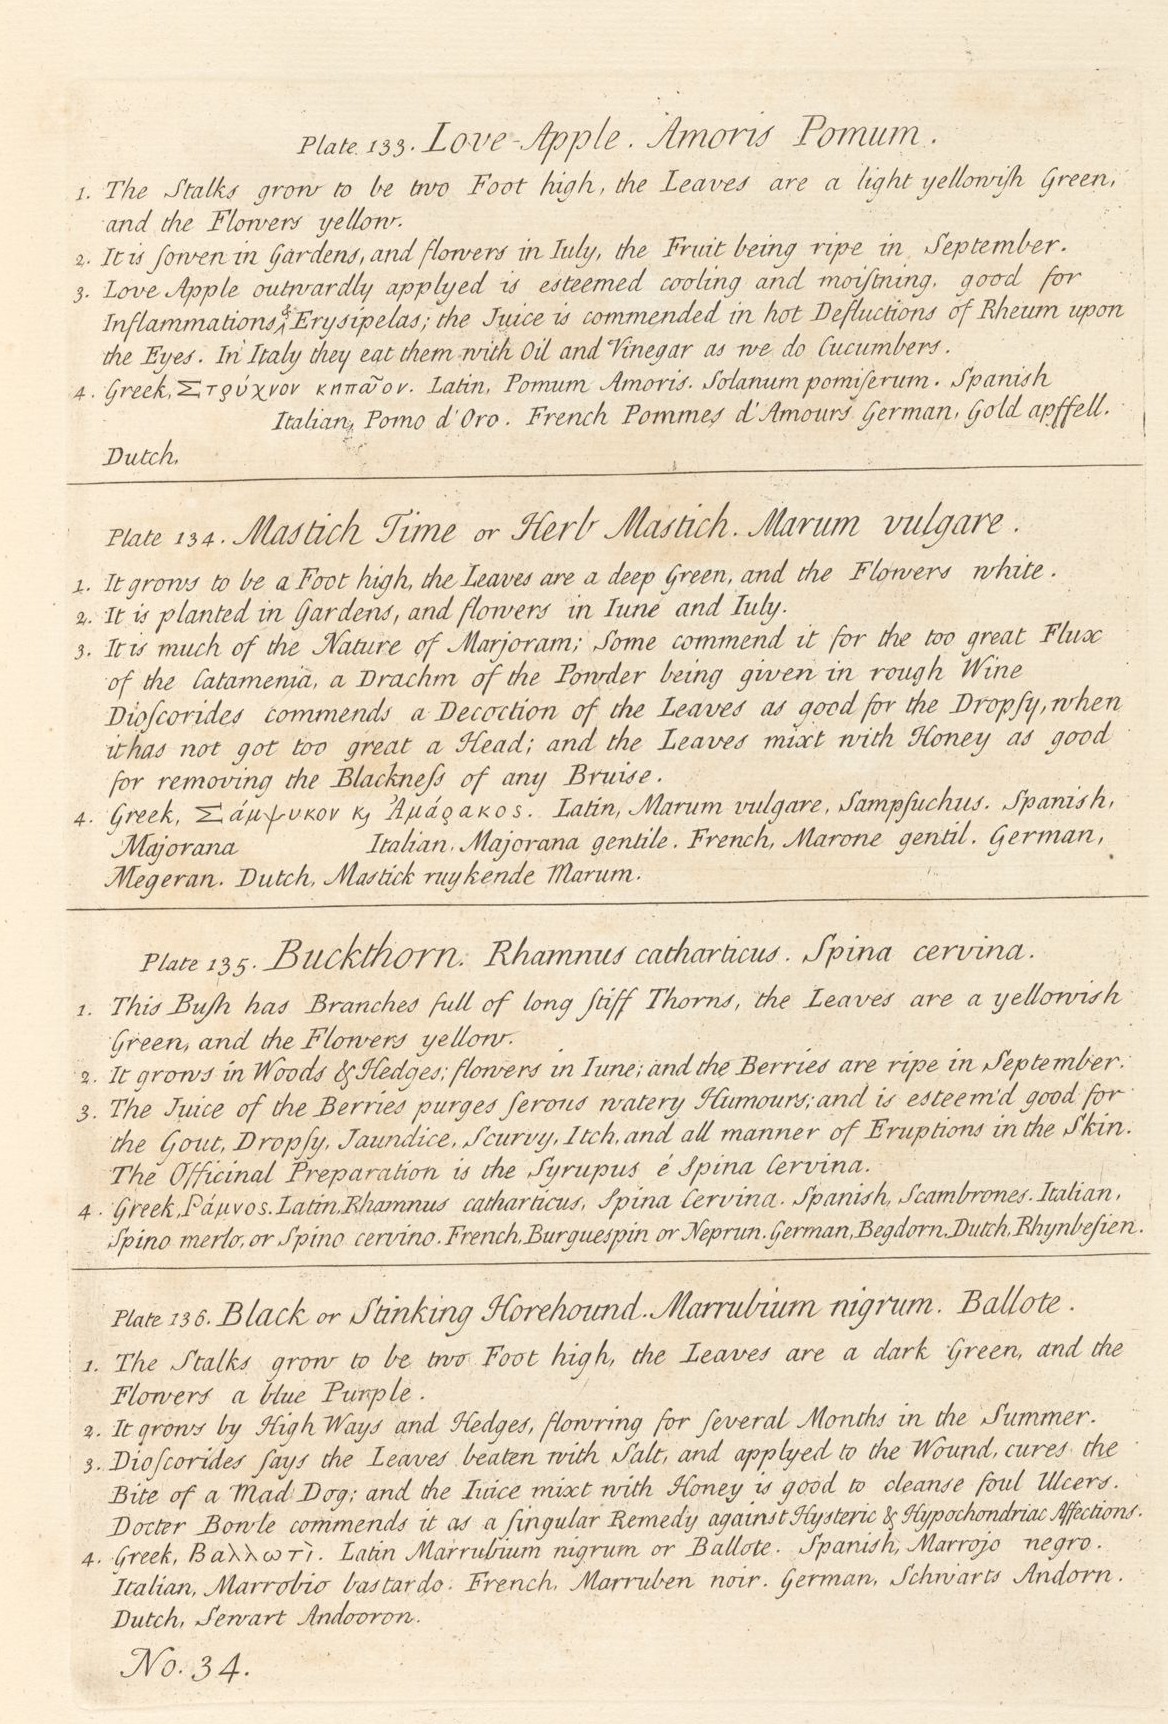 Plate 133. Love-Apple. Amoris Pomum.
1. The Stalks grow to be two Foot high, the Leaves are a light yellowiſh Green,
and the Flowers yellow.
2. It is ſowen in Gardens, and flowers in Iuly, the Fruit being ripe in September.
3. Love Apple outwardly applyed is esteemed cooling and moiſtning. good for
Inflammations, & Erysipelas; the Juice is commended in hot Defluctions of Rheum upon
the Eyes. In Italy they eat them with Oil and Vinegar as we do Cucumbers.
4. Greek, Στρύχνον κηπαῖον. Latin, Pomum Amoris. Solanum pomiferum. Spanish
Italian, Pomo d'Oro. French Pommes d'Amours German, Gold apffell.
Dutch,
Plate 134. Mastich Time or Herb Mastich. Marum vulgare.
1. It grows to be a Foot high, the Leaves are a deep Green, and the Flowers white.
2. It is planted in Gardens, and flowers in Iune and Iuly.
3. It is much of the Nature of Marjoram; Some commend it for the too great Flux
of the Catamenia, a Drachm of the Powder being given in rough Wine
Dioſcorides commends a Decoction of the Leaves as good for the Dropſy, when
it has not got too great a Head; and the Leaves mixt with Honey as good
for removing the Blackneſs of any Bruise.
4. Greek, Σάμψυκον ϗ Ἀμάρακος. Latin, Marum vulgare, Sampſuchus. Spanish,
Majorana Italian, Majorana gentile. French, Marone gentil. German,
Megeran. Dutch, Mastick ruykende Marum.
Plate 135. Buckthorn. Rhamnus catharticus. Spina cervina.
1. This Buſh has Branches full of long ſtiff Thorns, the Leaves are a yellowish
Green, and the Flowers yellow.
2. It grows in Woods & Hedges; flowers in Iune; and the Berries are ripe in September.
3. The Juice of the Berries purges ſerous watery Humours; and is esteem'd good for
the Gout, Dropſy, Jaundice, Scurvy, Itch, and all manner of Eruptions in the Skin.
The Officinal Preparation is the Syrupus é Spina Cervina.
4. Greek, Ράμνος. Latin, Rhamnus catharticus, Spina Cervina. Spanish, Scambrones. Italian,
Spino merlo, or Spino cervino. French, Burguespin or Neprun. German, Begdorn. Dutch, Rhynbeſien.
Plate 136. Black or Stinking Horehound. Marrubium nigrum. Ballote.
1. The Stalks grow to be two Foot high, the Leaves are a dark Green, and the
Flowers a blue Purple.
2. It grows by High Ways and Hedges, flowring for ſeveral Months in the Summer.
3. Dioſcorides ſays the Leaves beaten with Salt, and applyed to the Wound, cures the
Bite of a Mad Dog; and the Iuice mixt with Honey is good to cleanse foul Ulcers.
Docter Bowle commends it as a ſingular Remedy against Hysteric & Hypochondriac Affections.
4. Greek, Βαλλωτὶ. Latin Marrubium nigrum or Ballote. Spanish, Marrojo negro.
Italian, Marrobio bastardo. French, Marruben noir. German, Schwarts Andorn.
Dutch, Sewart Andooron.
No. 34.